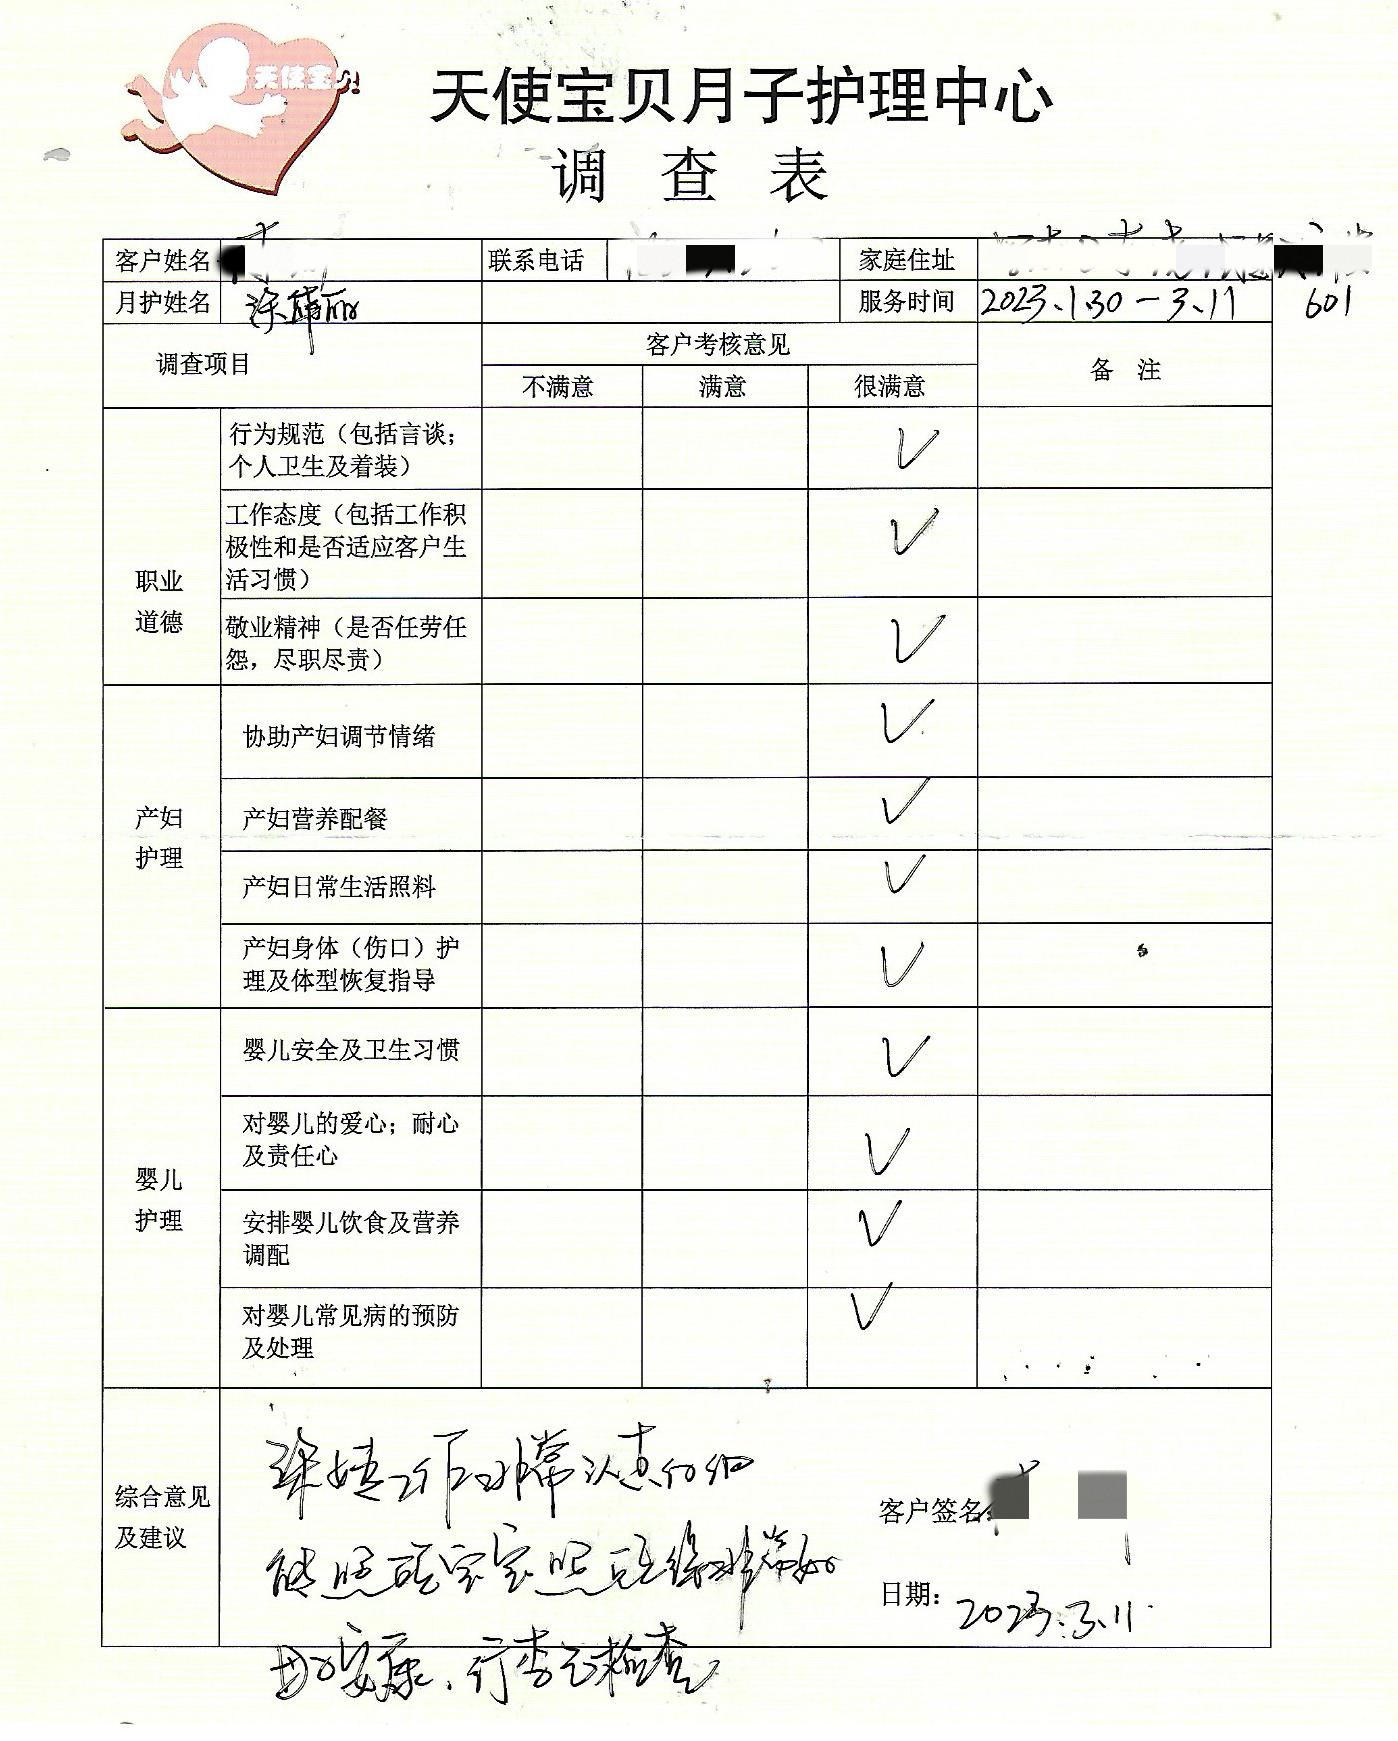 天使宝贝
天使宝贝月子护理中心
调查表
客户姓名 联系电话 家庭住址
月护姓名 服务时间 2023.1.30-3.11 601
调查项目 客户考核意见 备注
不满意 满意 很满意
职业道德
行为规范（包括言谈；
个人卫生及着装） √
工作态度（包括工作积
极性和是否适应客户生
活习惯） √
敬业精神（是否任劳任
怨，尽职尽责） √
产妇护理
协助产妇调节情绪 √
产妇营养配餐 √
产妇日常生活照料 √
产妇身体（伤口）护
理及体型恢复指导 √
婴儿护理
婴儿安全及卫生习惯 √
对婴儿的爱心；耐心
及责任心 √
安排婴儿饮食及营养
调配 √
对婴儿常见病的预防
及处理 √
综合意见及建议
工作非常认真仔细
照顾宝宝照顾得非常好
母子安康、行李已检查
客户签名：
日期：2023.3.11.